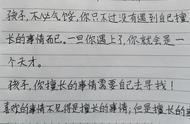 孩子,不必气馁,你只不过没有遇到自己擅
长的事情而已。一旦你遇上了,你就会是一
个天才。
孩子,你擅长的事情需要自己去寻找!
喜欢的事情不见得是擅长的事情;但是擅长的